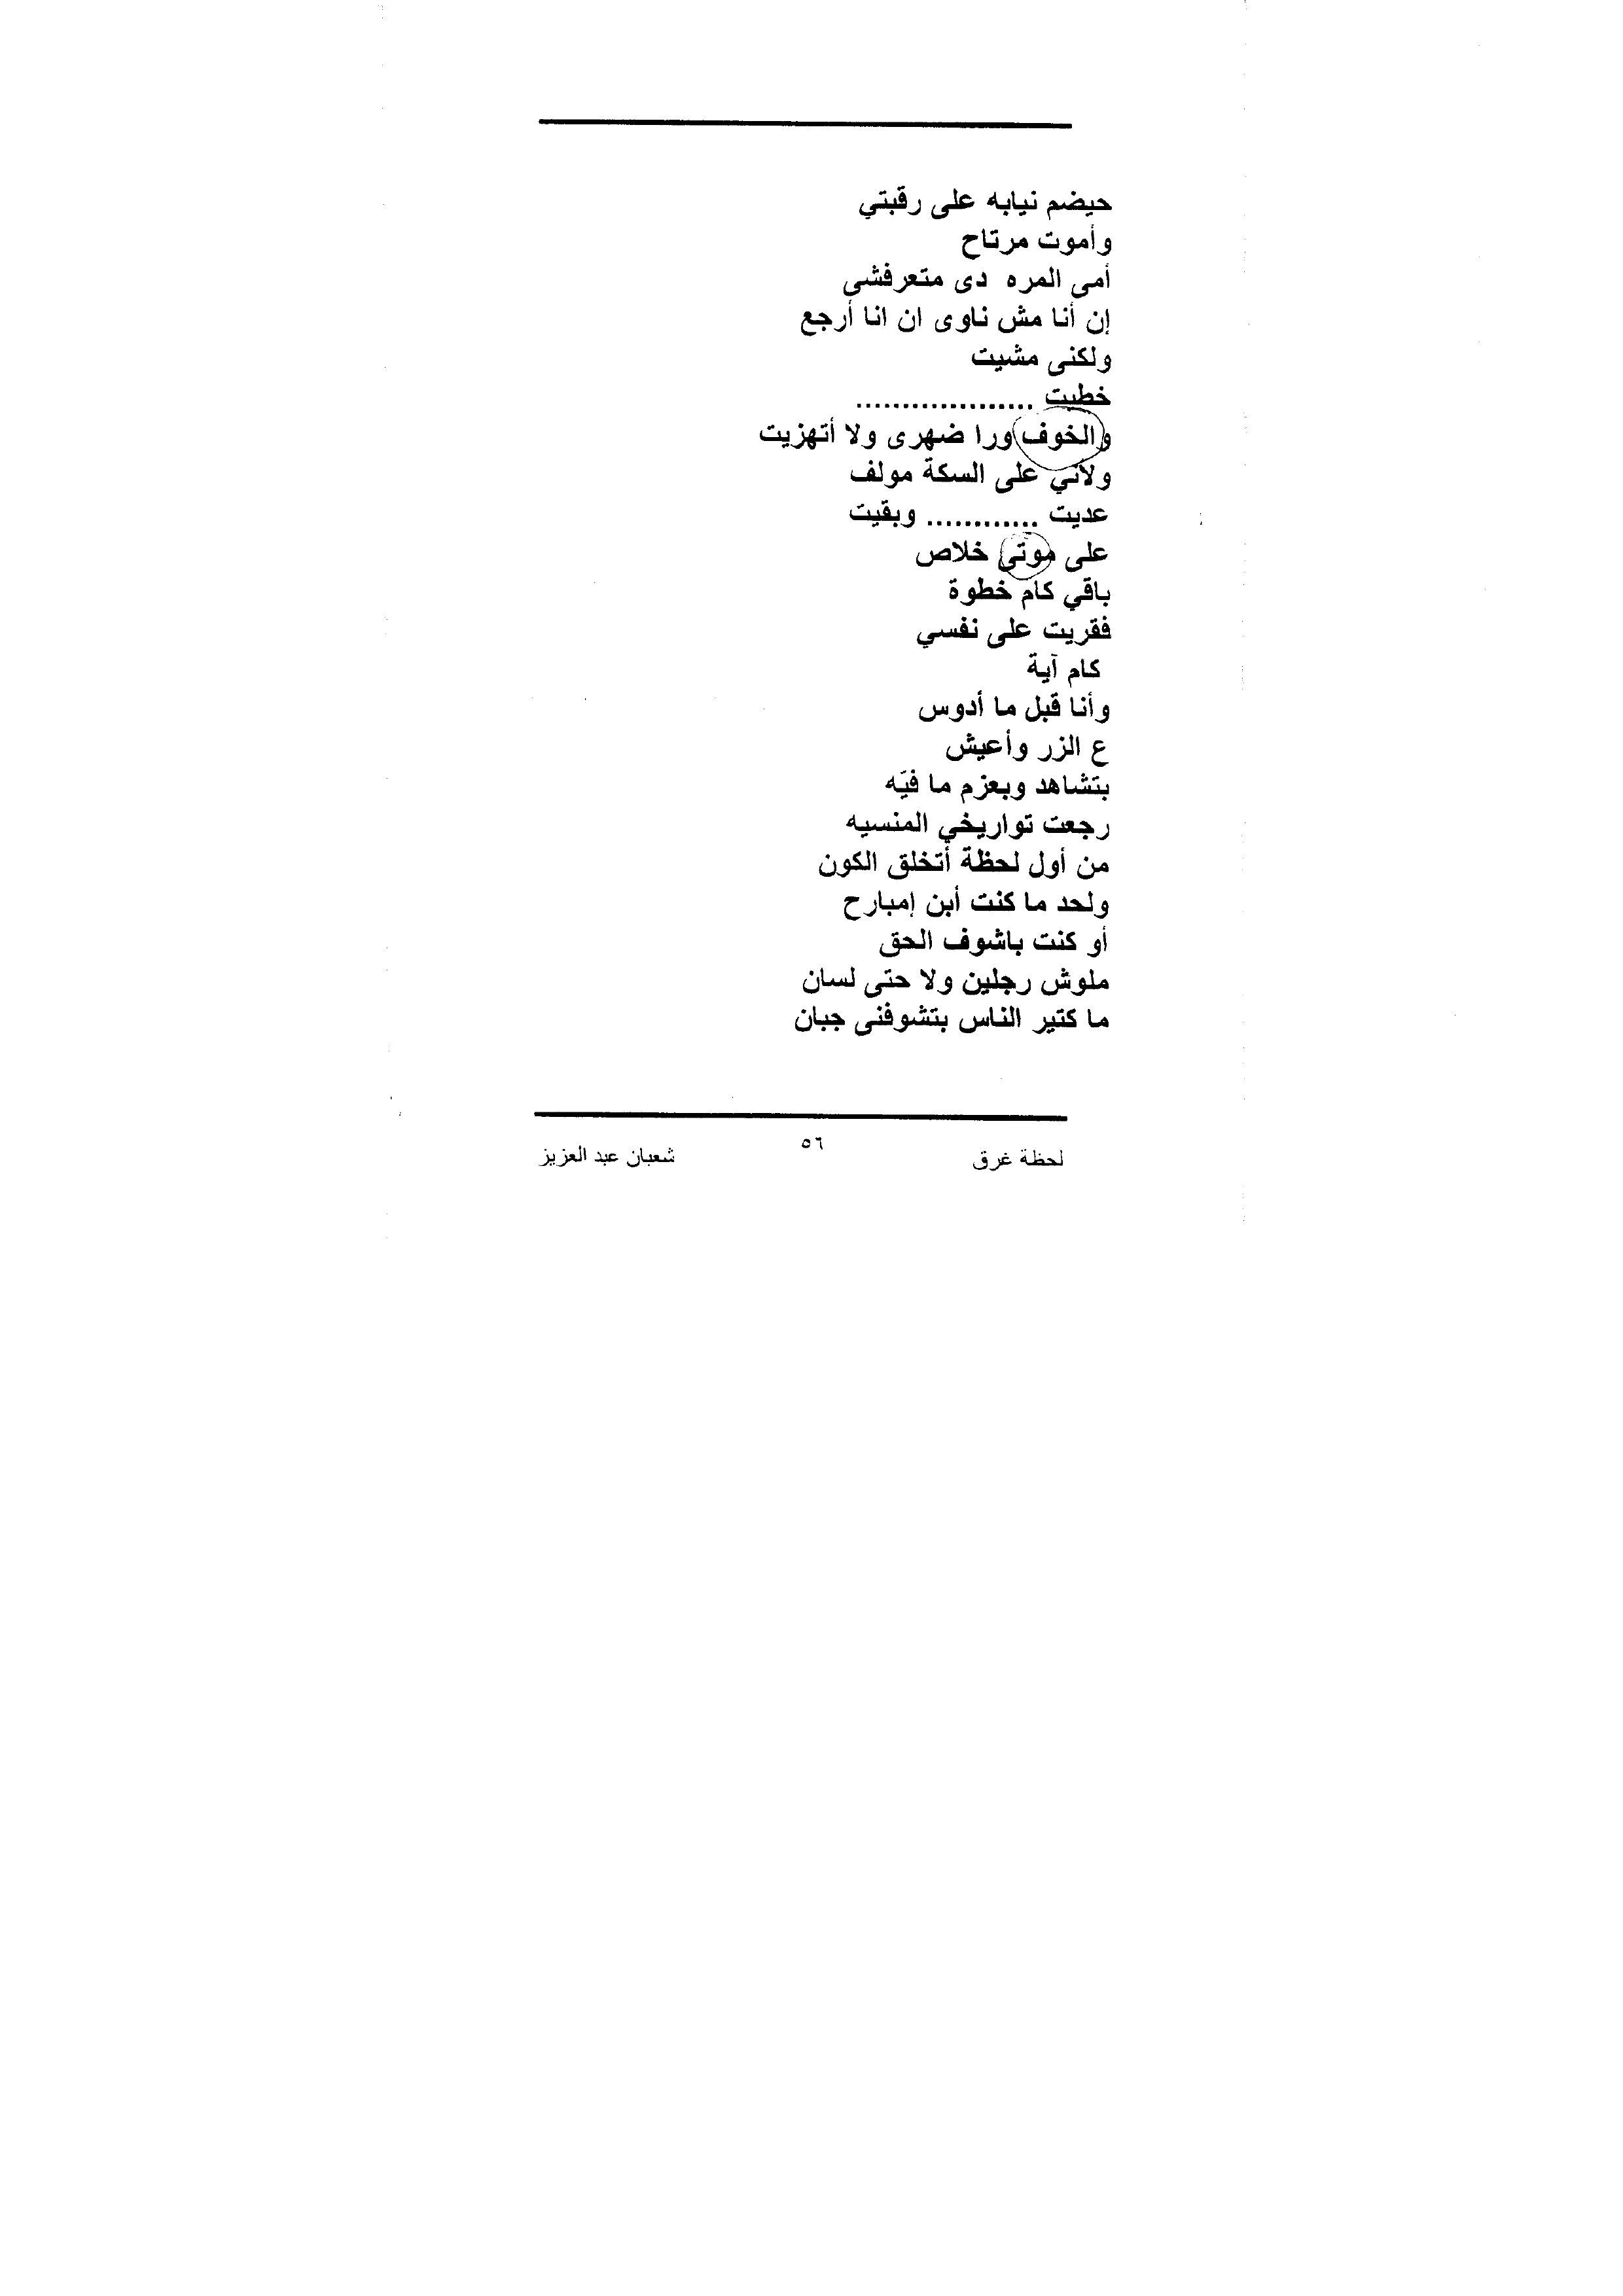 حيضم نيابه على رقبتي
وأموت مرتاح
أمى المره دى متعرفشى
إن أنا مش ناوى ان انا أرجع
ولكنى مشيت
خطيت ...................
والخوف ورا ضهرى ولا أتهزيت
ولأني على السكة مولف
عديت ............ وبقيت
على موتى خلاص
باقي كام خطوة
فقريت على نفسي
كام آية
وأنا قبل ما أدوس
ع الزر وأعيش
بتشاهد وبعزم ما فيّه
رجعت تواريخي المنسيه
من أول لحظة أتخلق الكون
ولحد ما كنت أبن إمبارح
أو كنت باشوف الحق
ملوش رجلين ولا حتى لسان
ما كتير الناس بتشوفنى جبان
٥٦
لحظة غرق شعبان عبد العزيز